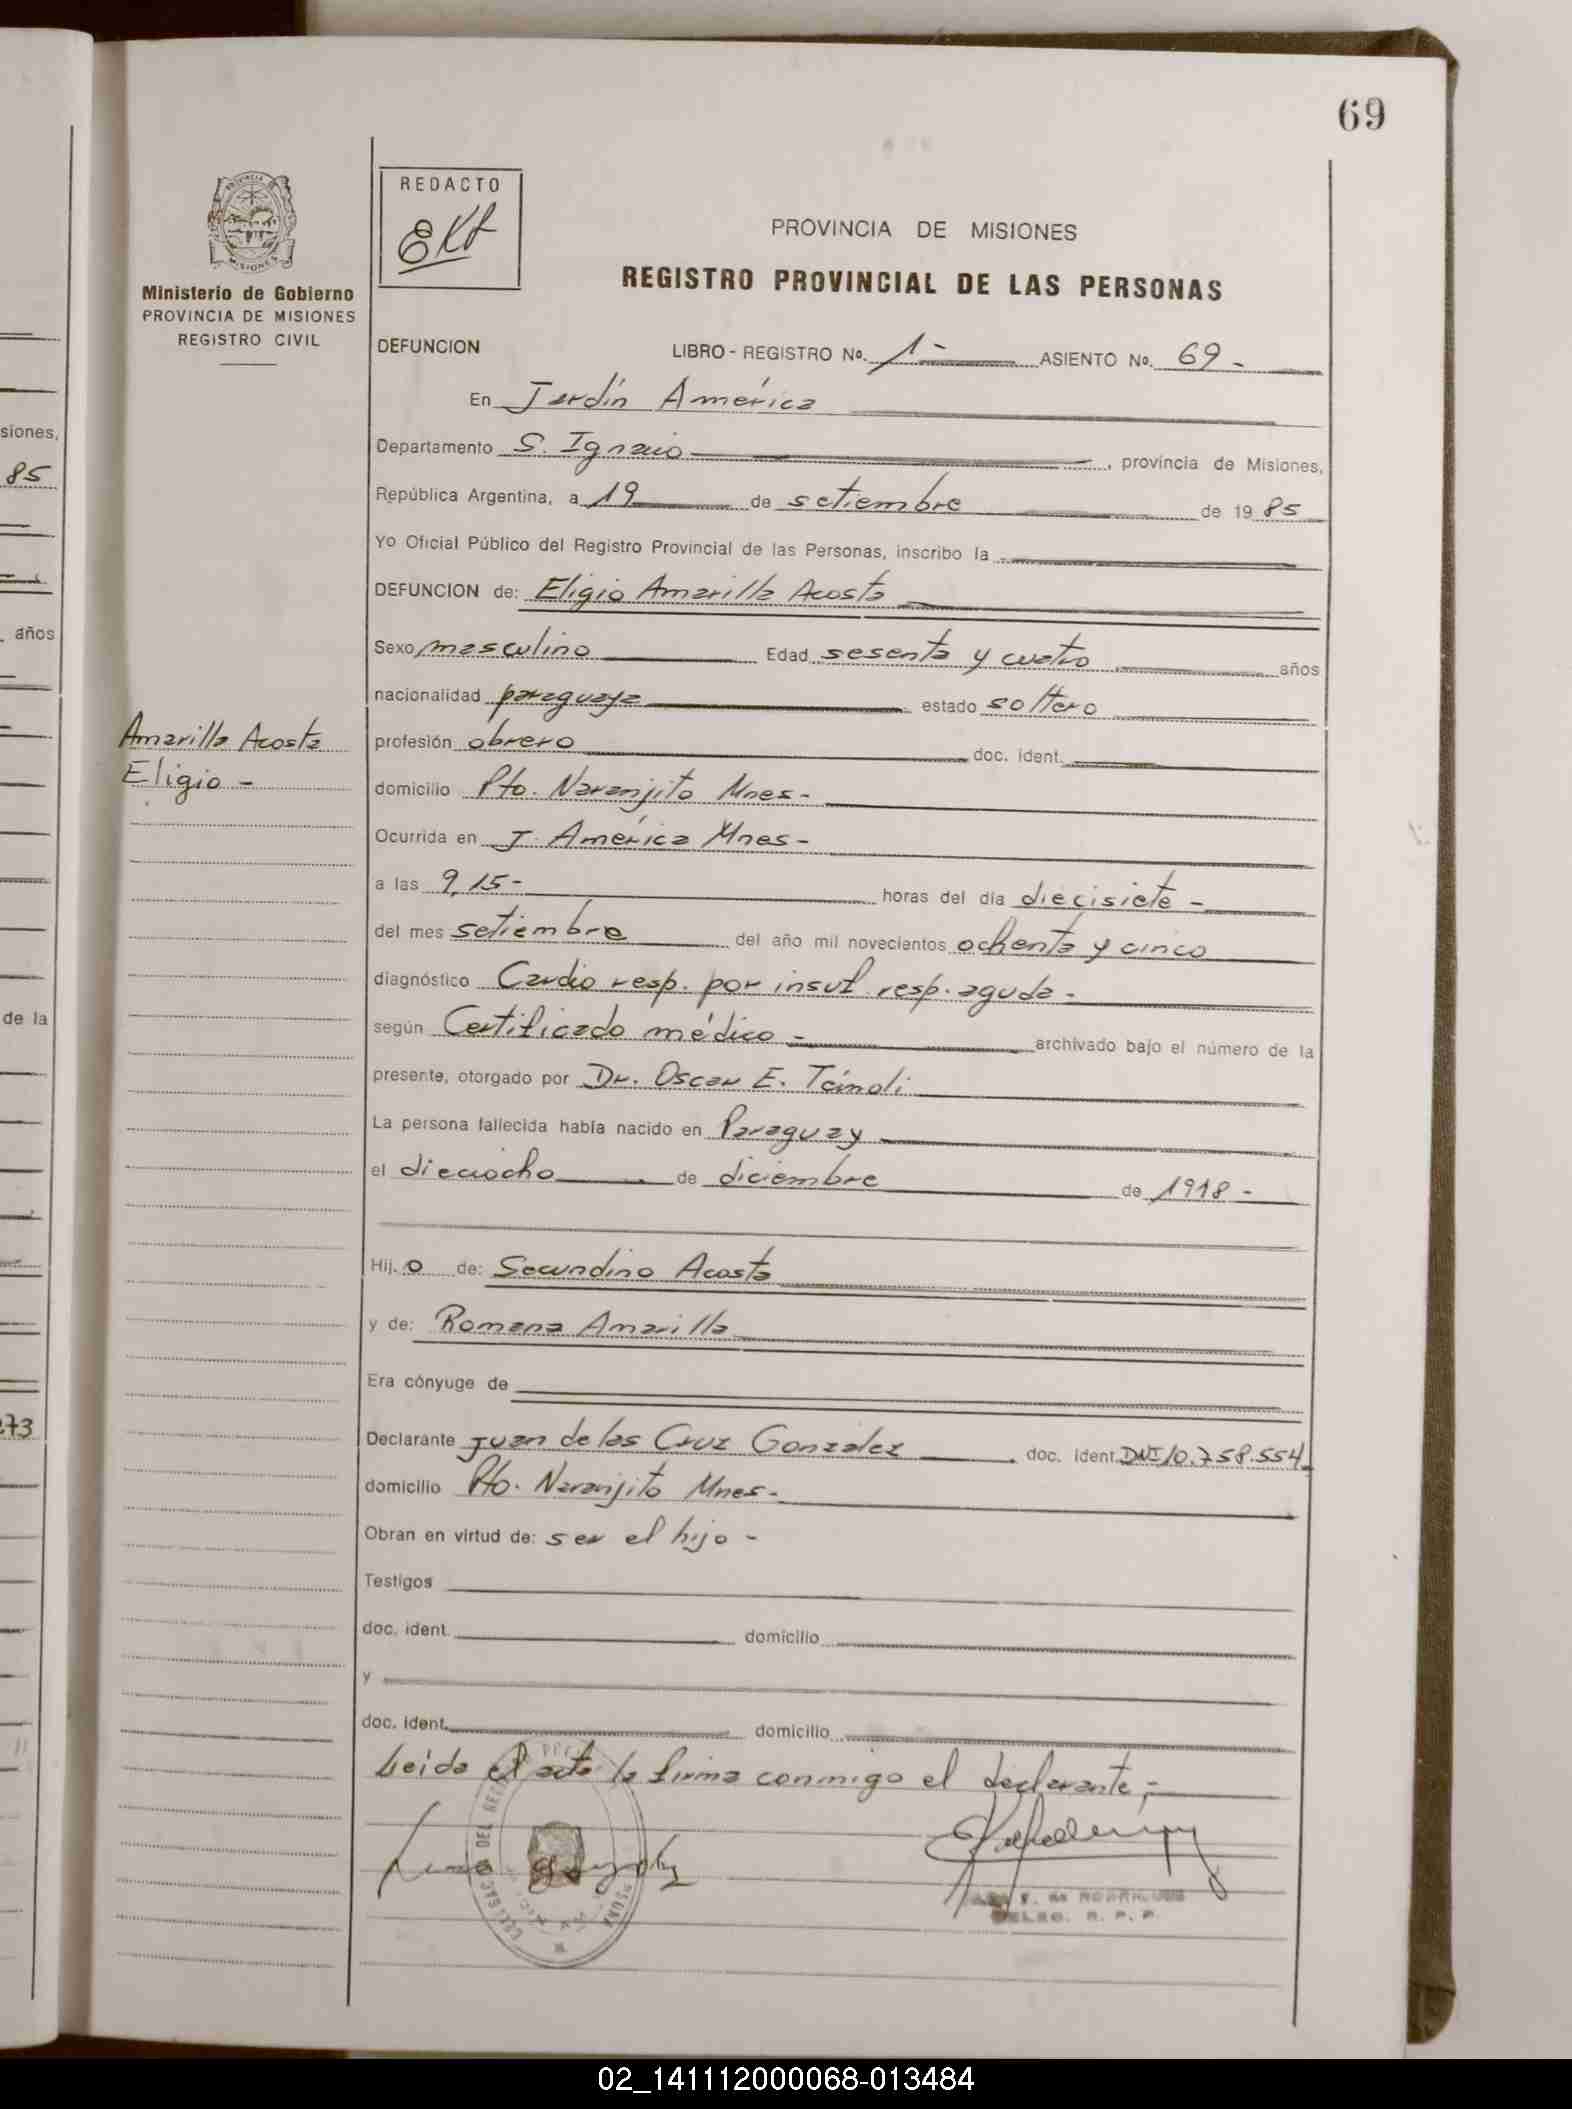 69
REDACTO
PROVINCIA DE MISIONES
REGISTRO PROVINCIAL DE LAS PERSONAS
Ministerio de Gobierno
PROVINCIA DE MISIONES
REGISTRO CIVIL
DEFUNCION LIBRO - REGISTRO Nº. 1 - ASIENTO Nº. 69 -
En Jardín América
siones,
Departamento S. Ignacio, provincia de Misiones,
85
República Argentina, a 19 de setiembre de 19 85
Yo Oficial Público del Registro Provincial de las Personas, inscribo la
DEFUNCION de: Eligio Amarilla Acosta
años
Sexo masculino Edad sesenta y cuatro años
nacionalidad paraguaya estado soltero
Amarilla Acosta
Eligio -
profesión obrero doc. ident.
domicilio Pto. Naranjito Mnes -
Ocurrida en J. América Mnes -
a las 9,15 - horas del día diecisiete -
del mes setiembre del año mil novecientos ochenta y cinco
diagnóstico Cardio resp. por insuf. resp. aguda -
de la
según Certificado médico - archivado bajo el número de la
presente, otorgado por Dr. Oscar E.
La persona fallecida había nacido en Paraguay
el dieciocho de diciembre de 1918 -
Hij. o de: Secundino Acosta
y de: Romana Amarilla
Era cónyuge de
273
Declarante Juan de las Cruz Gonzalez doc. ident. DNI 10.758.554
domicilio Pto. Naranjito Mnes -
Obran en virtud de: ser el hijo -
Testigos
doc. ident. domicilio
y
doc. ident. domicilio
Leida el acta la firma conmigo el declarante,-
02_141112000068-013484